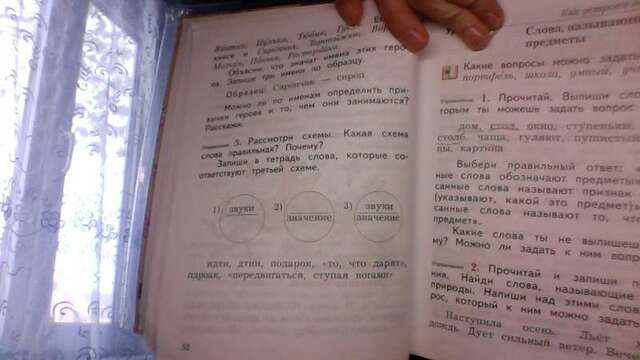 книге и
Объясни, что значат имена этих геро
ев. Запиши три имени по образцу.
Образец: Сиропчик — сироп.
Можно ли по именам определить при
вычки героев и то, чем они занимаются?
Расскажи.
3. Рассмотри схемы. Какая схема
слова правильная? Почему?
Запиши в тетрадь слова, которые со-
ответствуют третьей схеме.
1) звуки 2) 3) звуки
значение значение
идти, дтии, подарок, «то, что дарят»,
адроак, «передвигаться, ступая ногами»
52
Слова, называющ
предметы
Какие вопросы можно задать
портфель, школа, умный,
Упражнение 1. Прочитай. Выпиши сло
торым ты можешь задать вопрос
дом, стол, окно, ступеньки,
столб, чаща, гуляют, пушистый
картина
Выбери правильный ответ: «
ные слова обозначают предметы
санные слова называют признак
(указывают, какой это предмет)»
санные слова называют то, что
предмет».
Какие слова ты не выпише
му? Можно ли задать к ним вопр
Упражнение 2. Прочитай и запиши п
ния. Найди слова, называющие
природы. Напиши над этими слова
рос, который к ним можно задать
Наступила осень. Льёт
дождь. Дует сильный ветер.